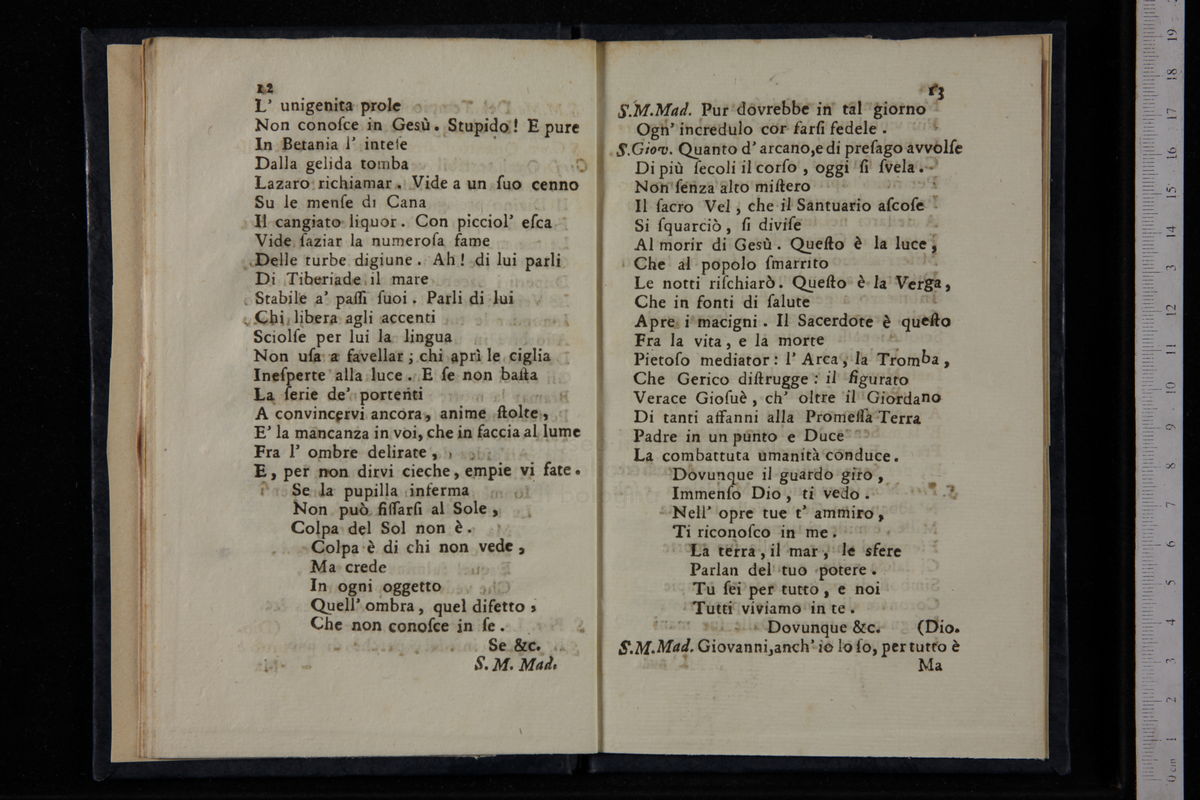 12
L' unigenita prole
Non conoſce in Gesù. Stupido! E pure
In Betania l' inteſe
Dalla gelida tomba
Lazaro richiamar. Vide a un ſuo cenno
Su le menſe di Cana
Il cangiato liquor. Con picciol' eſca
Vide ſaziar la numeroſa fame
Delle turbe digiune. Ah! di lui parli
Di Tiberiade il mare
Stabile a' paſſi ſuoi. Parli di lui
Chi libera agli accenti
Sciolſe per lui la lingua
Non uſa a favellar; chi aprì le ciglia
Ineſperte alla luce. E ſe non baſta
La ſerie de' portenti
A convincervi ancora, anime ſtolte,
E' la mancanza in voi, che in faccia al lume
Fra l' ombre delirate,
E, per non dirvi cieche, empie vi fate.
Se la pupilla inferma
Non può fiſſarſi al Sole,
Colpa del Sol non è.
Colpa è di chi non vede,
Ma crede
In ogni oggetto
Quell' ombra, quel difetto,
Che non conoſce in ſe.
Se &c.
S. M. Mad.
13
S.M.Mad. Pur dovrebbe in tal giorno
Ogn' incredulo cor farſi fedele.
S.Giov. Quanto d' arcano,e di preſago avvolſe
Di più ſecoli il corſo, oggi ſi ſvela.
Non ſenza alto miſtero
Il ſacro Vel, che il Santuario aſcoſe
Si ſquarciò, ſi diviſe
Al morir di Gesù. Queſto è la luce,
Che al popolo ſmarrito
Le notti riſchiarò. Queſto è la Verga,
Che in fonti di ſalute
Apre i macigni. Il Sacerdote è queſto
Fra la vita, e la morte
Pietoſo mediator: l' Arca, la Tromba,
Che Gerico diſtrugge: il figurato
Verace Gioſuè, ch' oltre il Giordano
Di tanti affanni alla Promeſſa Terra
Padre in un punto e Duce
La combattuta umanità conduce.
Dovunque il guardo giro,
Immenſo Dio, ti vedo.
Nell' opre tue t' ammiro,
Ti riconoſco in me.
La terra, il mar, le sfere
Parlan del tuo potere.
Tu ſei per tutto, e noi
Tutti viviamo in te.
Dovunque &c. (Dio.
S.M.Mad. Giovanni,anch' io lo ſo, per tutto è
Ma